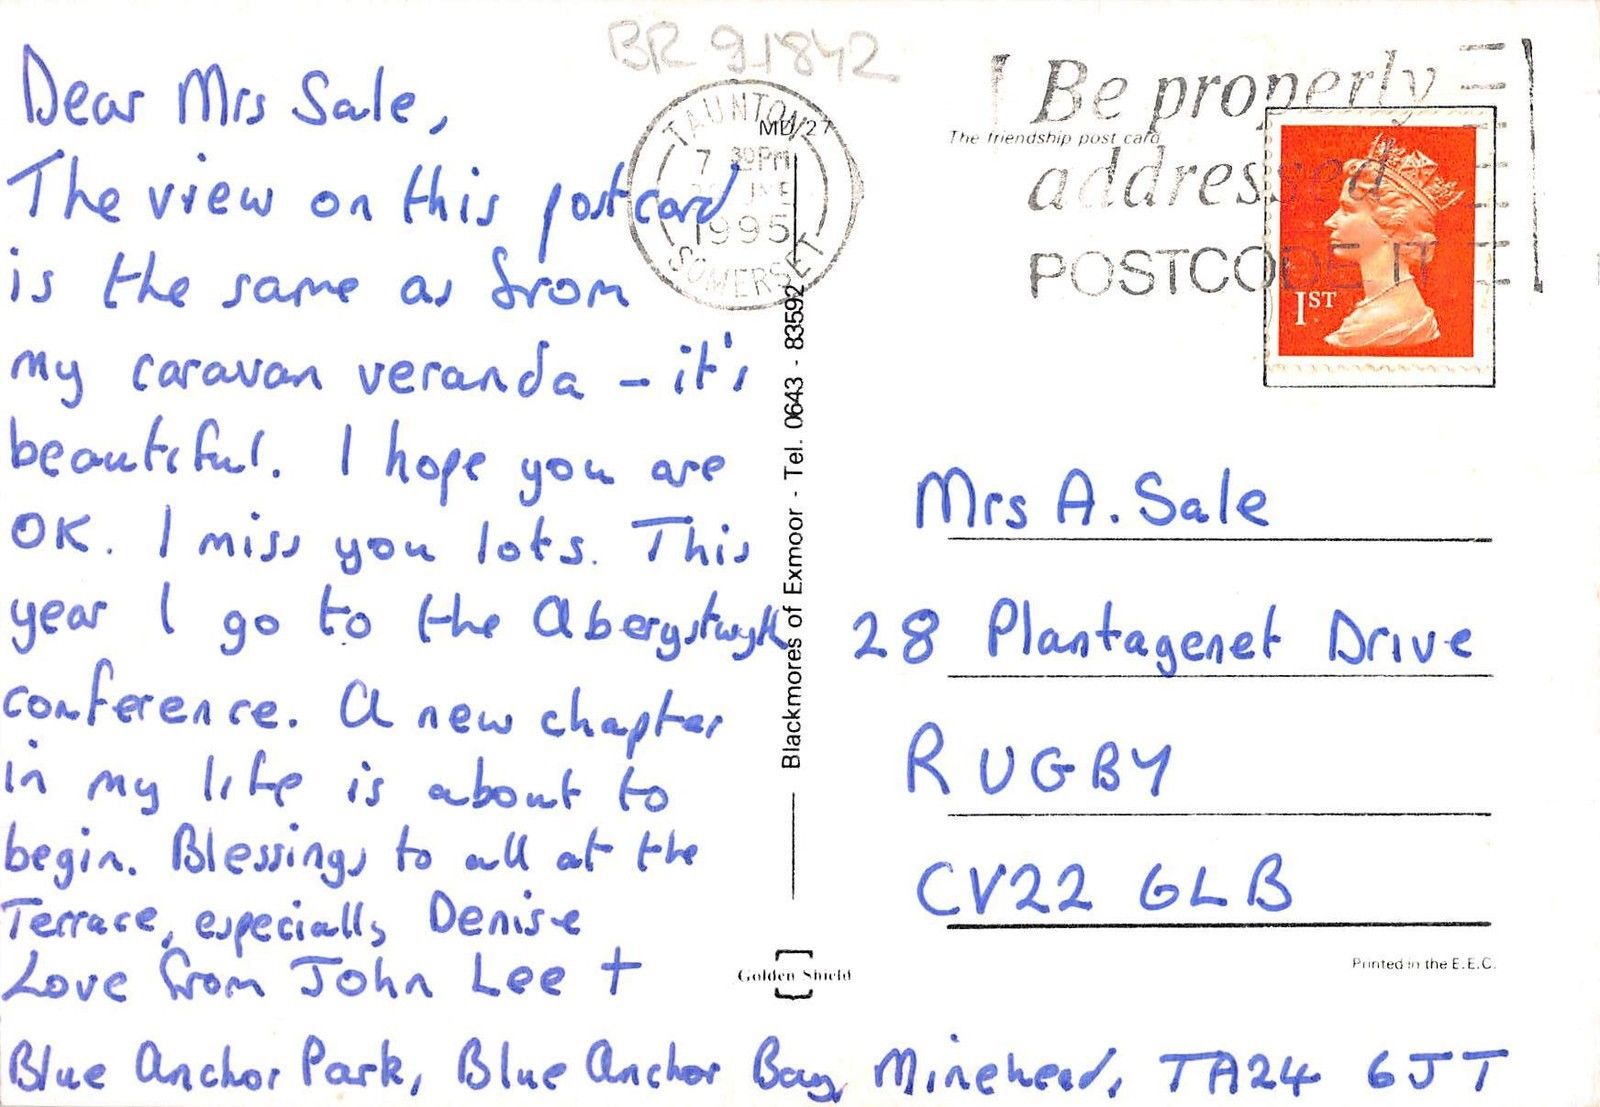 BR 91842
Dear Mrs Sale,
The view on this postcard
is the same as from
my caravan veranda – it's
beautiful. I hope you are
OK. I miss you lots. This
year I go to the Aberystwyth
conference. A new chapter
in my life is about to
begin. Blessings to all at the
Terrace, especially Denise
Love from John Lee +
Blue Anchor Park, Blue Anchor Bay, Minehead, TA24 6JT
TAUNTON
MD/27
7 30PM
JNE
1995
SOMERSET
Blackmores of Exmoor - Tel. 0643 - 83592
Golden Shield
Be properly
The friendship post card
addressed
POSTCODE IT
1ST
Mrs A. Sale
28 Plantagenet Drive
RUGBY
CV22 6LB
Printed in the E.E.C.